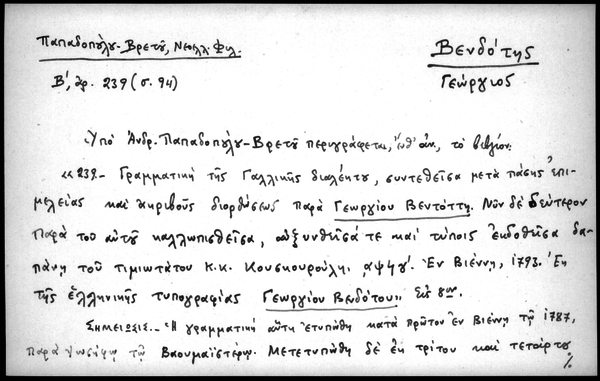 Παπαδοπούλου-Βρετοῦ, Νεοελλ. Φιλ.
Βενδότης
Β', ἀρ. 239 (σ. 94)
Γεώργιος
Ὑπὸ Ἀνδρ. Παπαδοπούλου-Βρετοῦ περιγράφεται, ἔνθ' ἀν., τὸ βιβλίον:
«239.- Γραμματικὴ τῆς Γαλλικῆς διαλέκτου, συντεθεῖσα μετὰ πάσης ἐπι-
μελείας καὶ ἀκριβοῦς διορθώσεως παρὰ Γεωργίου Βεντόττη. Νῦν δὲ δεύτερον
παρὰ τοῦ αὐτοῦ καλλωπισθεῖσα, αὐξυνθεῖσά τε καὶ τύποις ἐκδοθεῖσα δα-
πάνῃ τοῦ τιμιωτάτου Κ.Κ. Κουσκουρούλη, αψϟγ'. Ἐν Βιέννῃ, 1793. Ἐκ
τῆς ἑλληνικῆς τυπογραφίας Γεωργίου Βενδότου» Εἰς 8ον.
Σημείωσις.- Ἡ γραμματικὴ αὕτη ἐτυπώθη κατὰ πρῶτον ἐν Βιέννῃ τῷ 1787,
παρὰ Ἰωσήφῳ τῷ Βαουμαϊστέρῳ. Μετετυπώθη δὲ ἐκ τρίτου καὶ τετάρτου
%